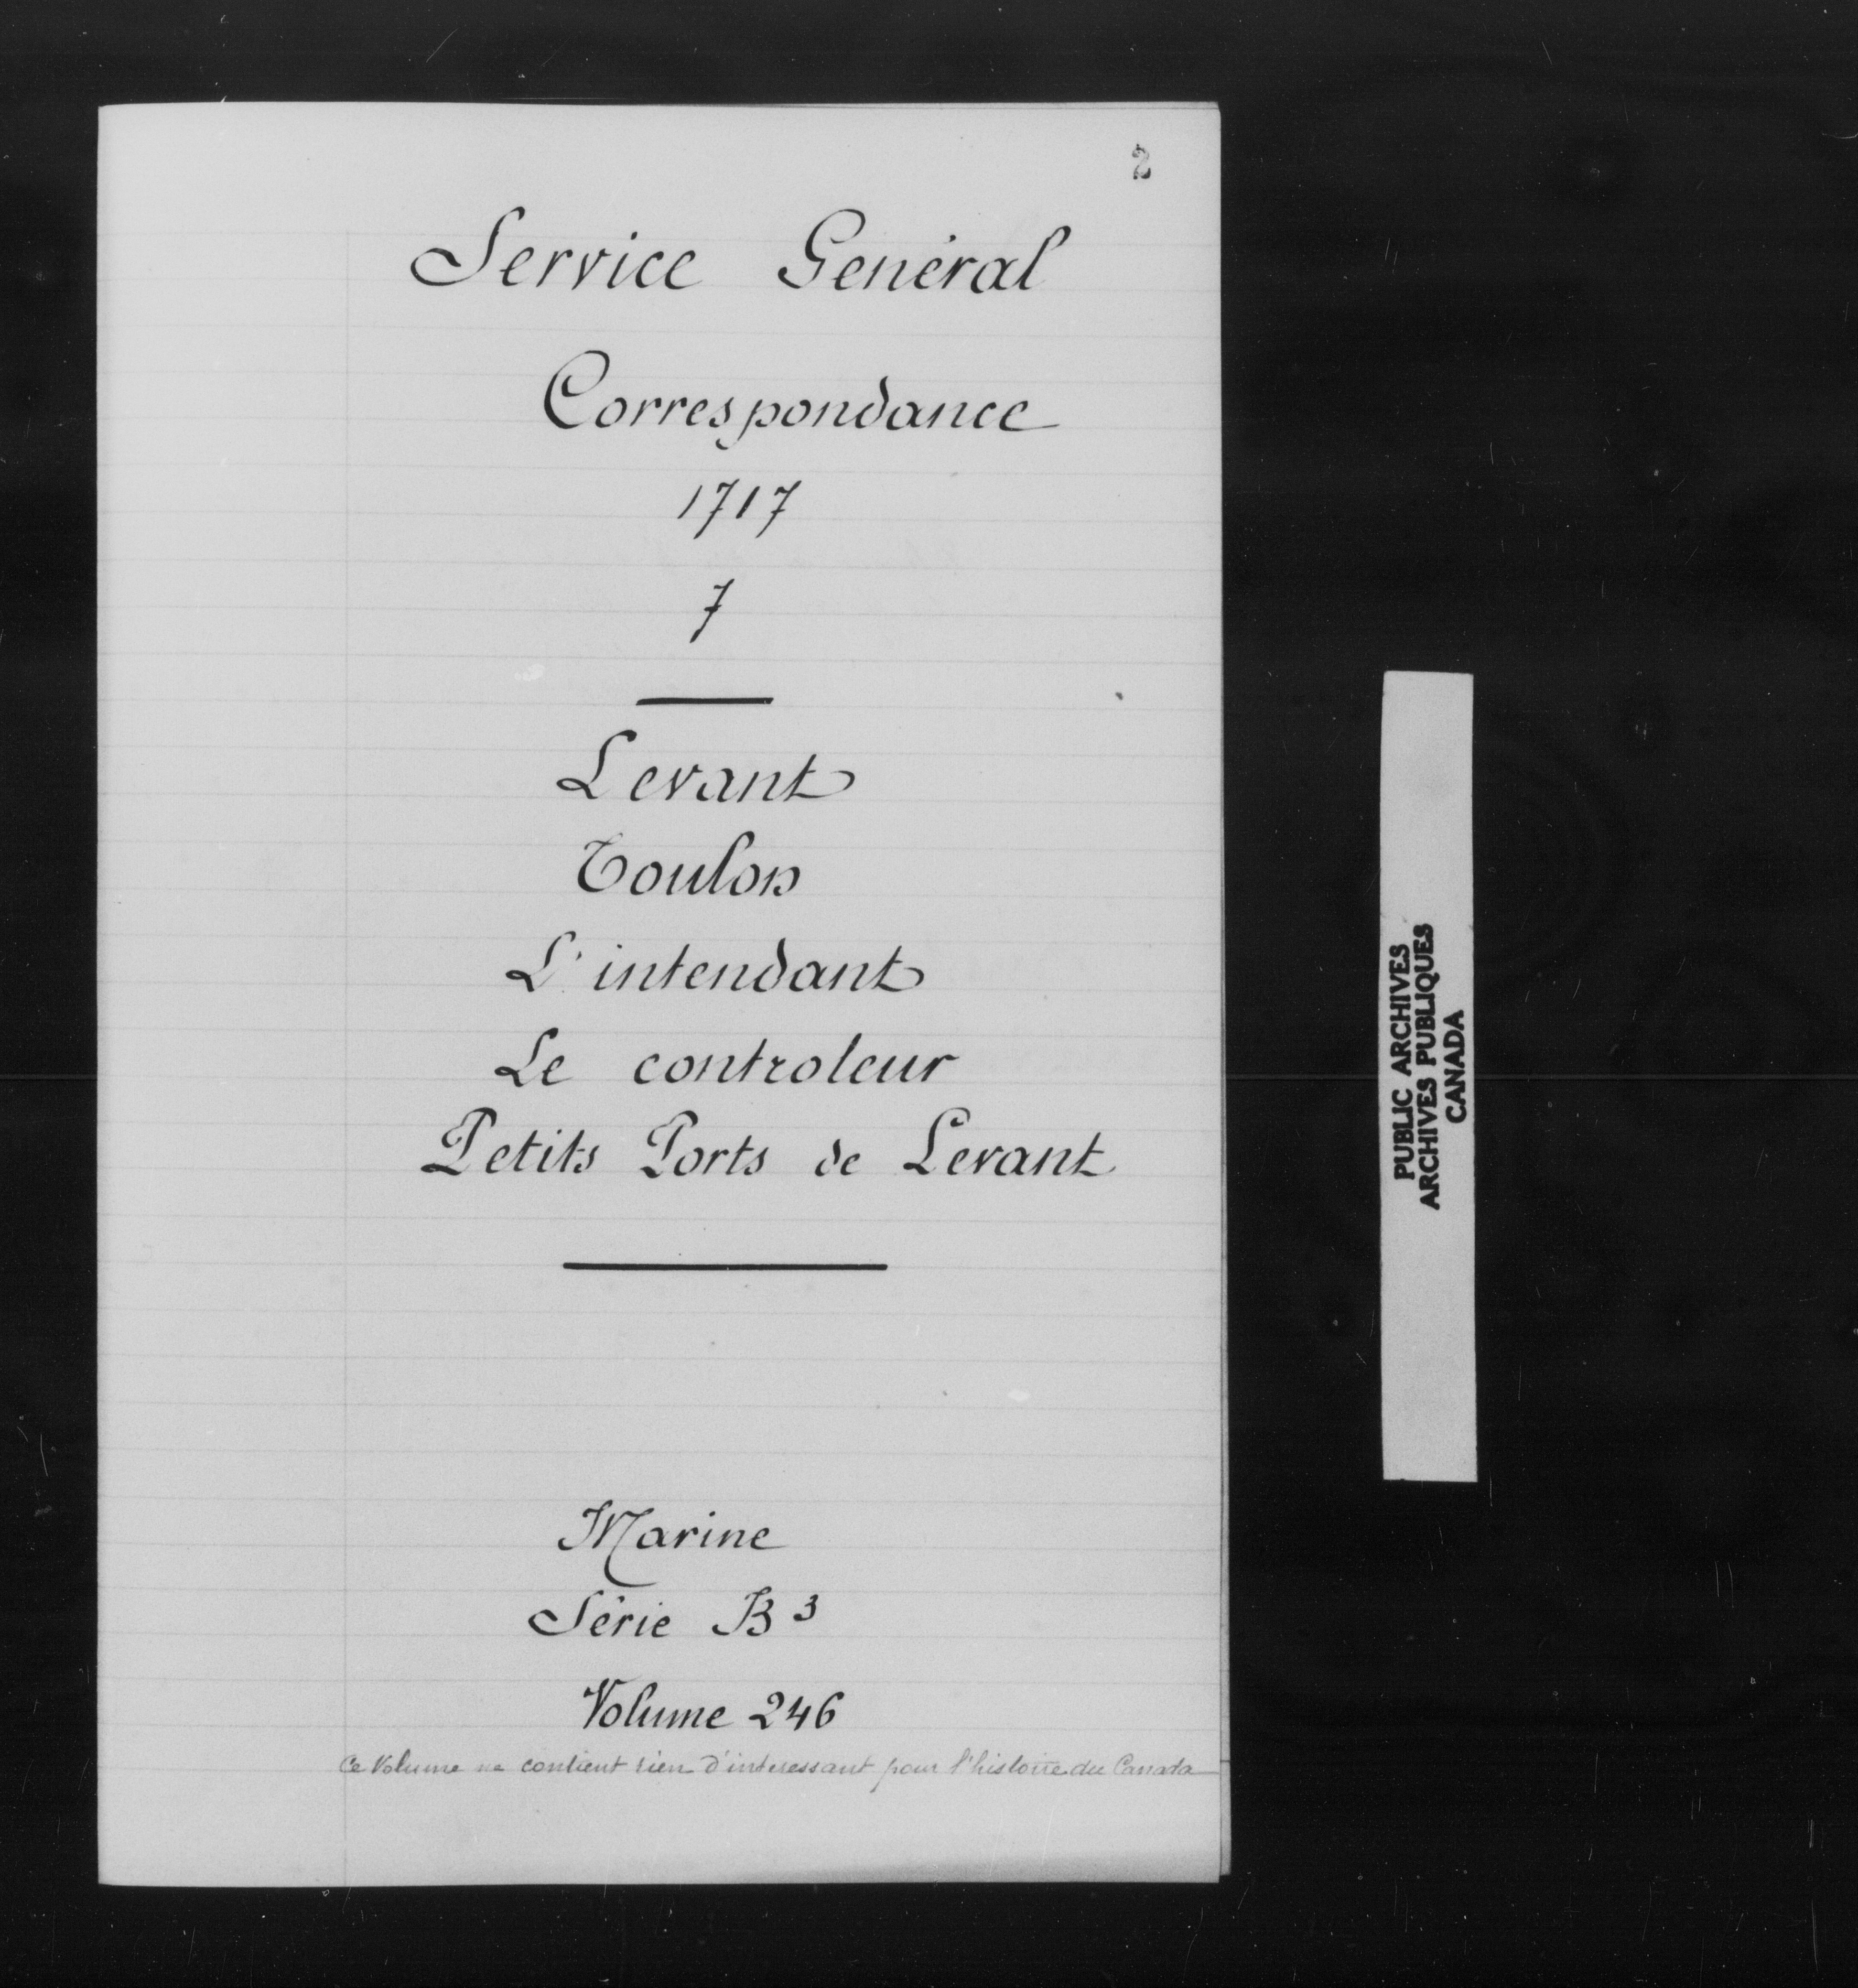 2
Service Genéral
Correspondance
1717
7
Levant
Toulon
L'intendant
Le controleur
Petits Ports de Levant
Marine
Série B3
Volume 246
Ce Volume ne contient rien d'interessant pour l'histoire du Canada
PUBLIC ARCHIVES
ARCHIVES PUBLIQUES
CANADA